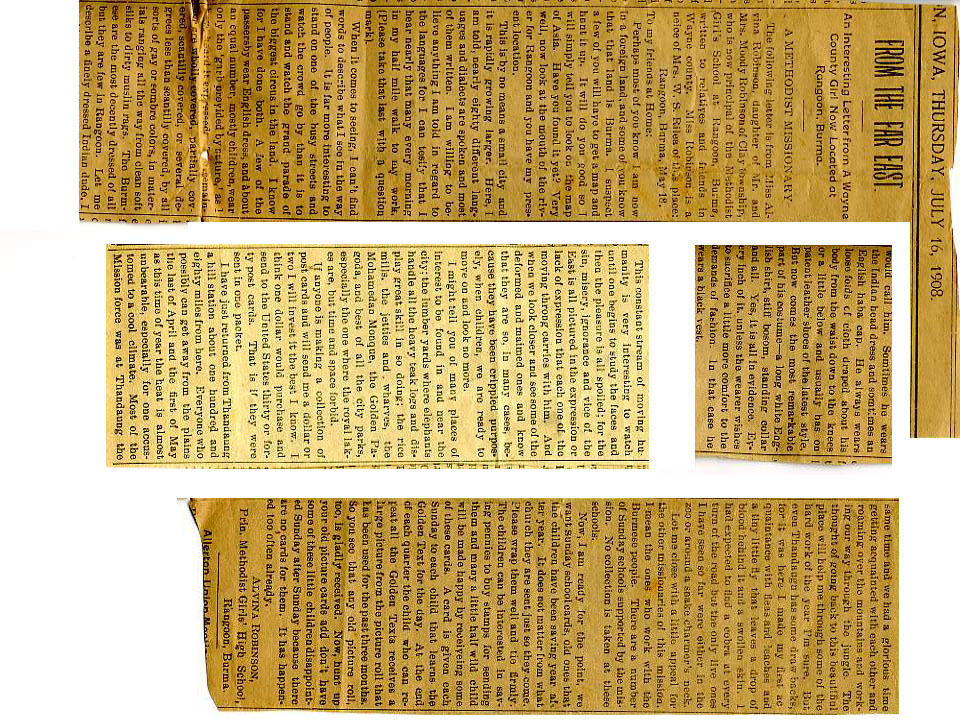 N, IOWA, THURSDAY, JULY 16, 1908.
FROM THE FAR EAST
An Interesting Letter from A Wayne
County Girl Now Located at
Rangoon, Burma.
A METHODIST MISSIONARY
The following letter is from Miss Al-
vina Robinson, daughter of Mr. and
Mrs. Moody Robinson, Clay township,
who is now principal of the Methodist
Girl's School at Rangoon, Burma,
written to relatives and friends in
Wayne county. Miss Robinson is a
neice of Mrs. W. S. Riles of this place:
Rangoon, Burma, May 18.
To my friends at Home:
Perhaps most of you know I am now
in a foreign land, and some of you know
that that land is Burma. I suspect
a few of you will have to get a map and
hunt it up. It will do you good so I
will simply tell you to look on the map
of Asia. Have you found it yet? Very
well, now look at the mouth of the riv-
er for Rangoon and you have my pres-
ent location.
This is by no means a small city and
it is rapidly growing larger. Here, I
am told, nearly eighty different lan-
guages and dialects are spoken and most
of them written. I am willing to be-
lieve anything I am told in regard to
the languages for I can testify that I
hear nearly that many every morning
in my half mile walk to my work.
(Please take that last with a question
mark).
When it comes to seeing, I can't find
words to describe what I see in the way
of people. It is far more interesting to
stand on one of the busy streets and
watch the crowd go by than it is to
stand and watch the grand parade of
the biggest circus in the land. I know
for I have done both. A few of the
passersby wear English dress, and about
an equal number, mostly children, wear
only the "garb provided by nature," as I
partially cov-
ered, scantily covered, or several de-
grees less than scantily covered, by all
sorts of gay or sombre colors, in mater-
ials ranging all the way from clean soft
silks to dirty muslin rags. The Burm-
ese are the most decently dressed of all
but they are few in Rangoon. Let me
describe a finely dressed Indian dude, I
would call him. Sometimes he wears
the Indian head dress and sometimes an
English haba cap. He always wears
loose folds of cloth draped about his
body from the waist down to the knees
or a little below and usually has on
patent leather shoes of the latest style.
But now comes the most remarkable
part of his costume—a long white Eng-
lish shirt, stiff bosom, standing collar
and all. Yes, it is all in evidence. Ev-
ery inch of it, unless the wearer wishes
to sacrifice a little more comfort to the
demands of fashion. In that case he
wears a black vest.
This constant stream of moving hu-
manity is very interesting to watch
until one begins to study the faces and
then the pleasure is all spoiled; for the
sin, misery, ignorance and vice of the
East is all pictured in the expression or
lack of expression that each one of the
moving throng carries with him. And
then we look closer and see some of the
deformed and maimed ones and know
that they are so, in many cases, be-
cause they have been crippled purpos-
ely, when children, we are ready to
turn away and look no more.
I might tell you of many places of
interest to be found in and near the
city; the lumber yards where elephants
handle all the heavy teak logs and dis-
play great skill in so doing; the rice
mills, the jetties and wharves, the
Mohamedan Mosque, the Golden Pa-
goda, and best of all the city parks,
especially the one where the royal lak-
es are, but time and space forbid.
If anyone is making a collection of
post cards and will send me a dollar or
two I will invest it the best I know. I
think one dollar would purchase and
send to the United States thirty or for-
ty post cards. That is if they were
sent in one packet.
I have just returned from Thandaung
a hill station about one hundred and
eighty miles from here. Everyone who
possibly can get away from the plains
the last of April and the first of May
as this time of year the heat is almost
unbearable, especially for one accus-
tomed to cool climate. Most of the
Mission force was at Thandaung the
same time and we had a glorious time
getting acquainted with each other and
roaming over the mountains and work-
ing our way through the jungle. The
thought of going back to this beautiful
place will help me through some of the
hard work of the year I'm sure. But
even Thandaugn has some draw backs,
for it was here I made my first ac-
quaintance with fleas and leaches and
a tiny little fly that leaves a drop of
blood behind it and a swollen skin. I
had expected to find a cobra at every
turn of the road but the only live ones
I have seen so far were either in the
zoo or around a snake charmer's neck.
Let me close with a little appeal for
the other missionaries of this mission.
I mean the ones who work with the
Burmese people. There are a number
of Sunday schools supported by the mis-
sion. No collection is taken at these
schools.
Now, I am ready for the point, we
want Sunday school cards, old ones that
the children have been saving year af-
ter year. It does not matter from what
church they are sent just so they come.
Please wrap them well and tie firmly.
The children can be interested in sav-
ing pennies to buy stamps for sending
them and many a little half wild child
will be made happy by receiving some
of these cards. A card is given each
Sunday to each child that learns the
Golden Text for the day. At the end
of each quarter the child who can re-
peat all the Golden Texts receives a
large picture from the picture roll that
has been used for the past three months.
So you see that any old picture roll,
too, is gladly received. Now, hunt up
your old picture cards and don't have
some of these little children disappoint-
ed Sunday after Sunday because there
are no cards for them. It has happen-
ed too often already.
ALVINA ROBINSON,
Prin. Methodist Girls' High School,
Rangoon Burma.
Allerton Union